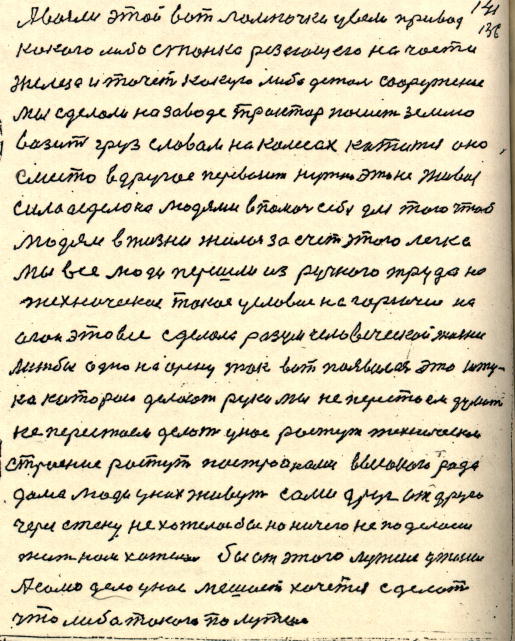 141
136
А взяли этой вот лампочки увели привод
какого либо станка резающего на части
железа и точет какую либо детал сооружение
мы сделали на заводе трактор пошет землю
возит груз словам на колесах катится оно
с место в другое перевозит нужно это не живая
сила а сделона людями в помоч себя для того чтоб
людям в жизни жилося за счет этого легка
мы все люди перешли из ручного труда на
техническое такое условие на горючие на
огон это все сделола разум человеческой жизни
лижбы одно на арену так вот появился это шту-
ка которою делоют руки мы не перестоем думат
не перестоем делот у нас ростут технически
строение ростут построиками высокого рода
дома люди у них живут сами друг от друга
через стену не хотела бы но ничего не поделоеш
жит нам хотелос бы от этого лутше
А само дело у нас мешает хочется сделот
что либо такого по лутше